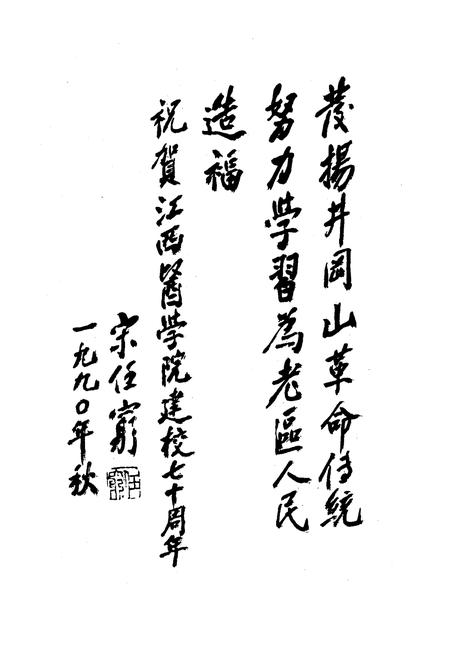 發揚井岡山革命传統
努力学習為老區人民
造福
祝賀江西醫学院建校七十周年
宋任窮
一九九〇年秋